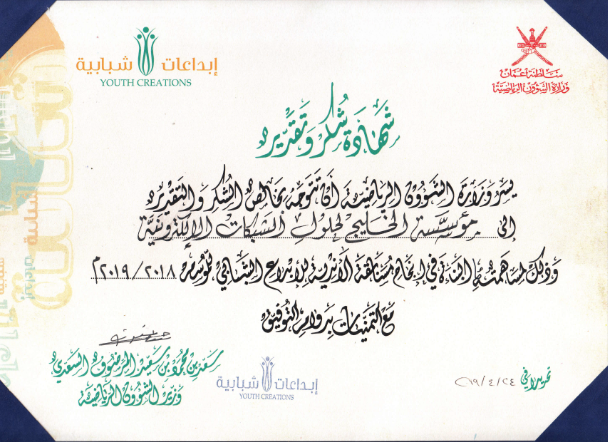 إبداعات شبابية
YOUTH CREATIONS
سلطنة عمان
وزارة الشؤون الرياضية
شهادة شكر وتقدير
يسر وزارة الشؤون الرياضية أن تتوجه بخالص الشكر والتقدير
إلى مؤسسة الخليج لحلول الشبكات الإلكترونية
وذلك لمساهمته الفعالة في إنجاح مسابقة الأندية للإبداع الشبابي للموسم ٢٠١٨/٢٠١٩م
مع التمنيات بدوام التوفيق
سعد بن محمد بن سعيد المرضوف السعدي
وزير الشؤون الرياضية
إبداعات شبابية
YOUTH CREATIONS
تحريرا في ٢٠١٩/٤/٢٤